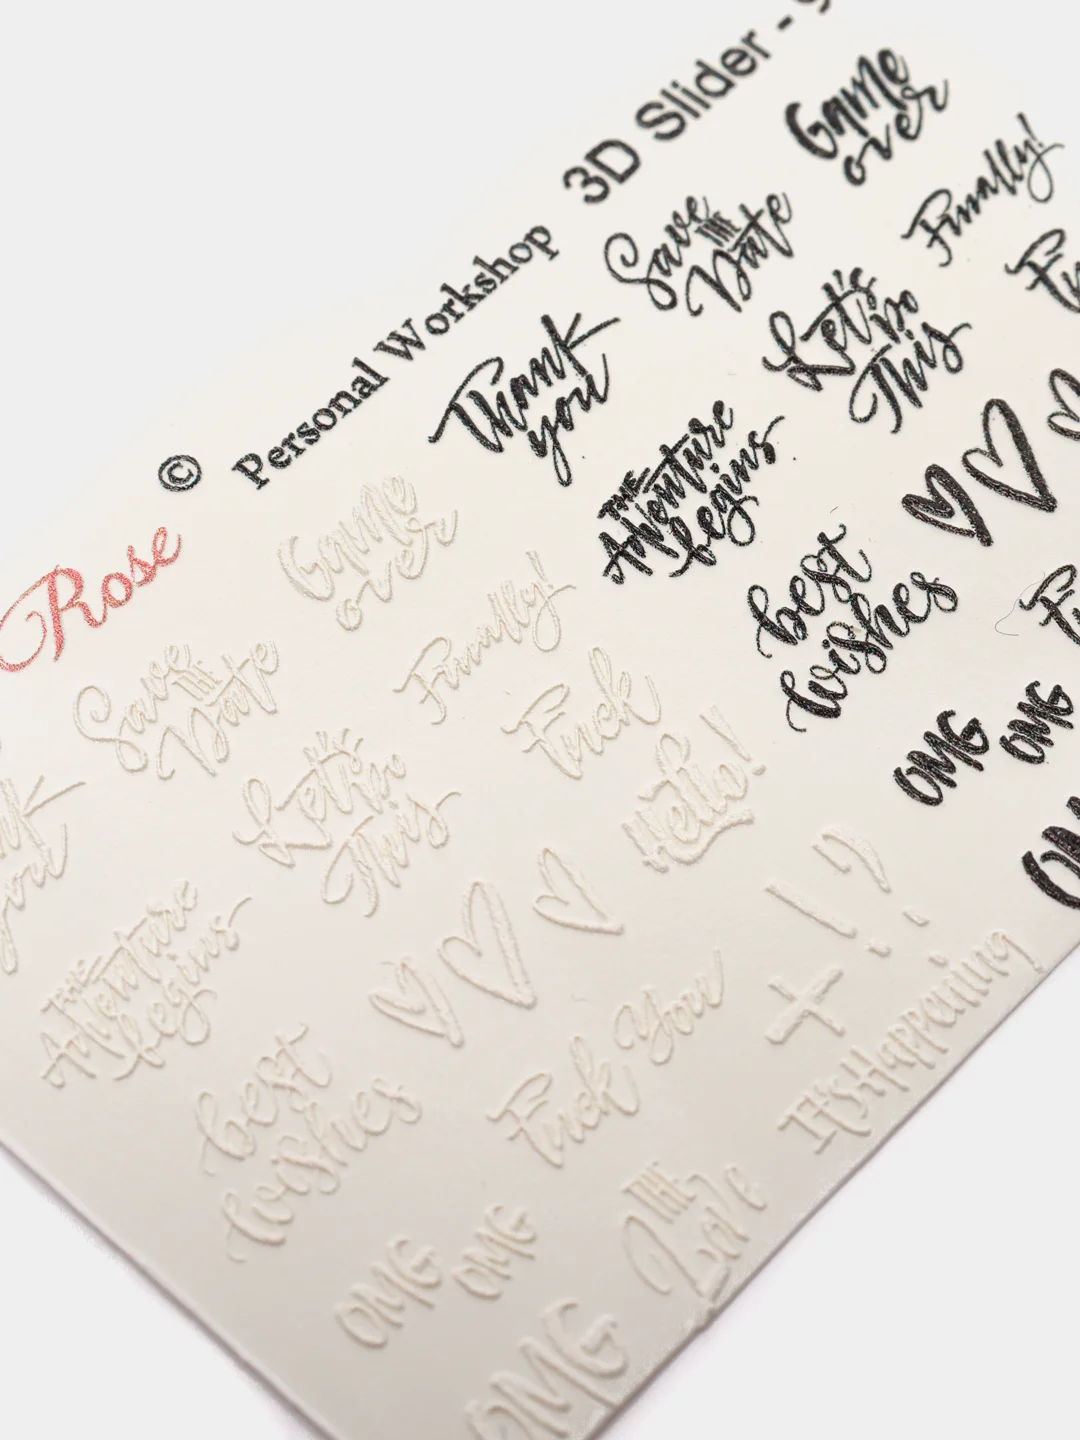 3D Slider -
© Personal Workshop
Rose
Game
over
Finally!
Save
THE
Date
Let's
Do
This
Thank
you
THE
Adventure
begins
best
wishes
OMG
OMG
Game
over
Finally!
Save
THE
Date
Fuck
Let's
Do
This
Hello!
you
THE
Adventure
begins
! ?
+
best
wishes
Fuck You
It's Happening
THE
Love
OMG
OMG
OMG